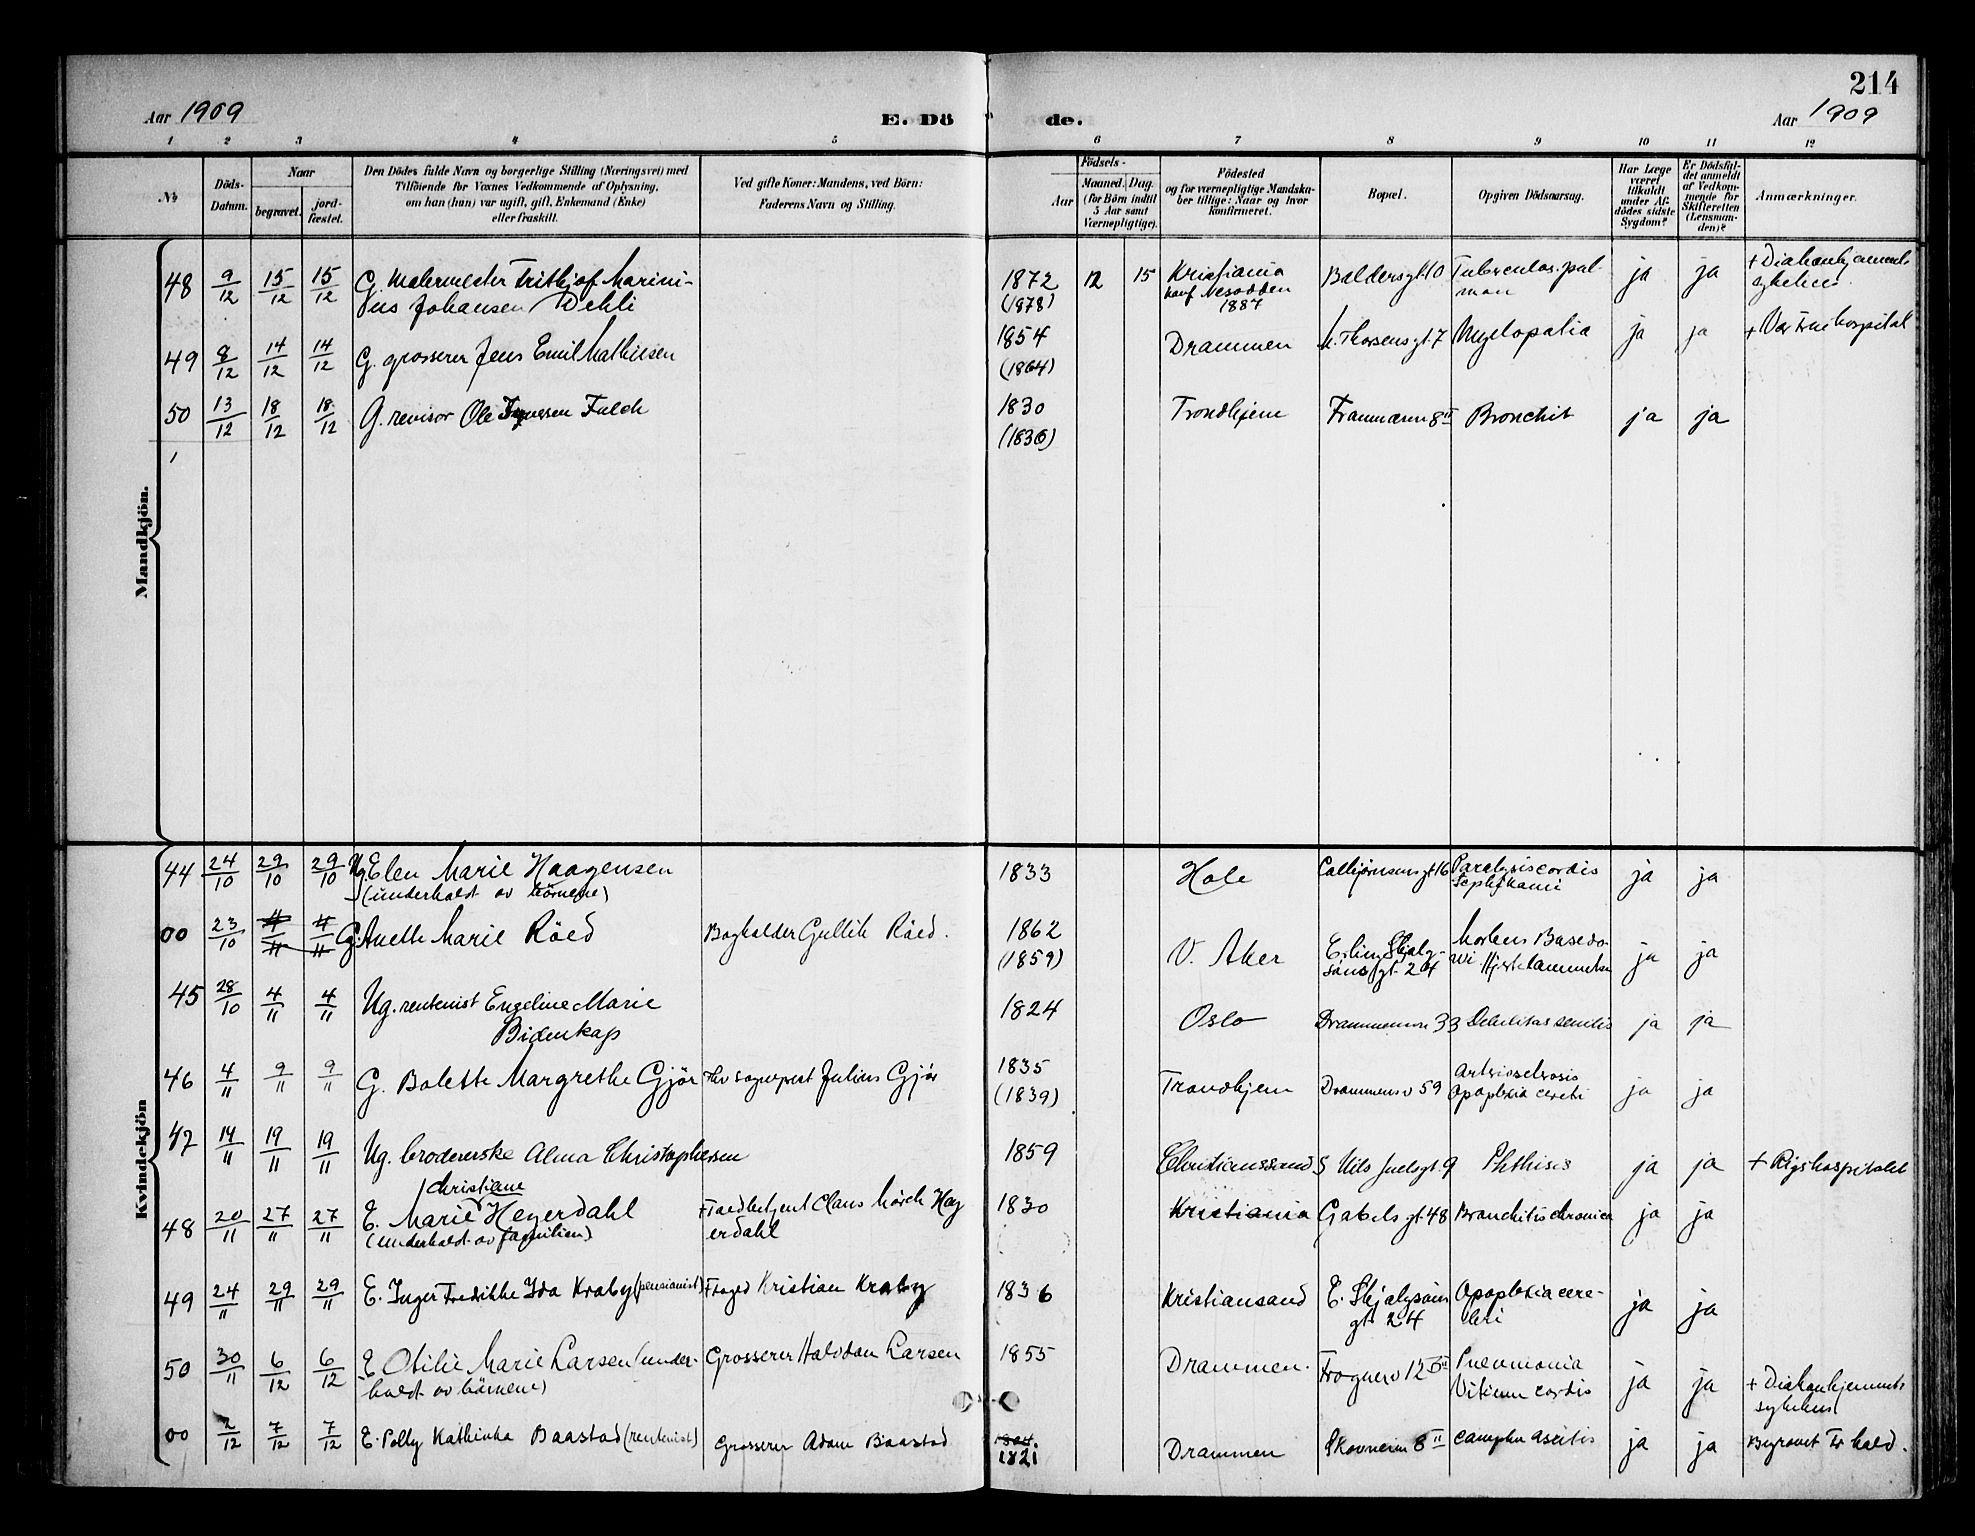 214
Aar 1909 E. Dö de. Aar 1909
1 2 3 4 5 6 7 8 9 10 11 12
№ Döds-Datum. Naar begravet. jord-fæstet. Den Dödes fulde Navn og borgerlige Stilling (Næringsvei) med
Tilföiende for Voxnes Vedkommende af Oplysning,
om han (hun) var ugift, gift, Enkemand (Enke)
eller fraskilt.
Ved gifte Koner: Mandens, ved Börn:
Faderens Navn og Stilling.
Födsels-
Aar Maaned. Dag.
(for Börn indtil
5 Aar samt
Værnepligtige).
Födested
og for værnepligtige Mandska-
ber tillige: Naar og hvor
konfirmeret.
Bopæl.
Opgiven Dödsaarsag.
Har Læge
været
tilkaldt
under Af-
dödes sidste
Sygdom?
Er Dödsfal-
det anmeldt
af Vedkom-
mende for
Skifteretten
(Lensman-
den)?
Anmærkninger.
Mandkjön.
48 9/12 15/12 15/12 G. Malermester Frithjof Marini- 1872 12 15 Kristiania Baldersgt. 10 Tuberculos. pul- ja ja + Diakonhjemmets
us Johansen Dehli (1878) konf Nesodden mon sykehus.
1887
49 8/12 14/12 14/12 G. grosserer Jens Emil Mathiesen 1854 Drammen M. Thorsensgt. 7 Myelopatia ja ja + Vor Frue hospital
(1864)
50 13/12 18/12 18/12 G. revisor Ole Falch 1830 Trondhjem Framnæsvn 8 II Bronchit ja ja
(1836)
Kvindekjön
44 24/10 29/10 29/10 Ug. Elen Marie Haagensen 1833 Hole Colbjørnsensgt 16 Paralysis cordis ja ja
(underholdt av börnene)
00 23/10 4/11 4/11 G. Anette Marie Röed Bogholder Gullik Röed. 1862 V. Aker Erling Skjalg- Morbus Basedo- ja ja
(1859) sönsgt. 24 wi
45 28/10 4/11 4/11 Ug. rentenist Engeline Marie 1824 Oslo Drammensvn 33 Debilitas senilis ja ja
Bidenkap
46 4/11 9/11 9/11 G. Bolette Margrethe Gjör Fhv sogneprest Julius Gjör 1835 Trondhjem Drammensv 59 Arteriosclerosis ja ja
(1839) Apoplexia cerebri
47 14/11 19/11 19/11 Ug. brodererske Alma Christophersen 1859 Christianssand S Nils Juelsgt. 9 Phthisis ja ja + Rigshospitalet
Christiane
48 20/11 27/11 27/11 E. Marie Heyerdahl Toldbetjent Claus Mörch Hey 1830 Kristiania Gabelsgt. 48 Bronchitis chronica ja ja
(underholdt av familien) erdahl
49 24/11 29/11 29/11 E. Inger Fredrikke Ida Kraby (pensionist) Foged Kristian Kraby 1836 Kristiansand E. Skjalgsöns Apoplexia cere- ja ja
gt. 24 bri
50 30/11 6/12 6/12 E Otilie Marie Larsen (under- Grosserer Halvdan Larsen 1855 Drammen. Frognerv 12 Pneumonia ja ja + Diakonhjemmets
holdt av börnene) Vitium cordis sykehus
00 2/12 7/12 7/12 E. Polly Kathinka Baastad (rentenist) Grosserer Adam Baastad 1821 Drammen Skovveien 8 II ascitis ja ja Begravet Fr.hald.